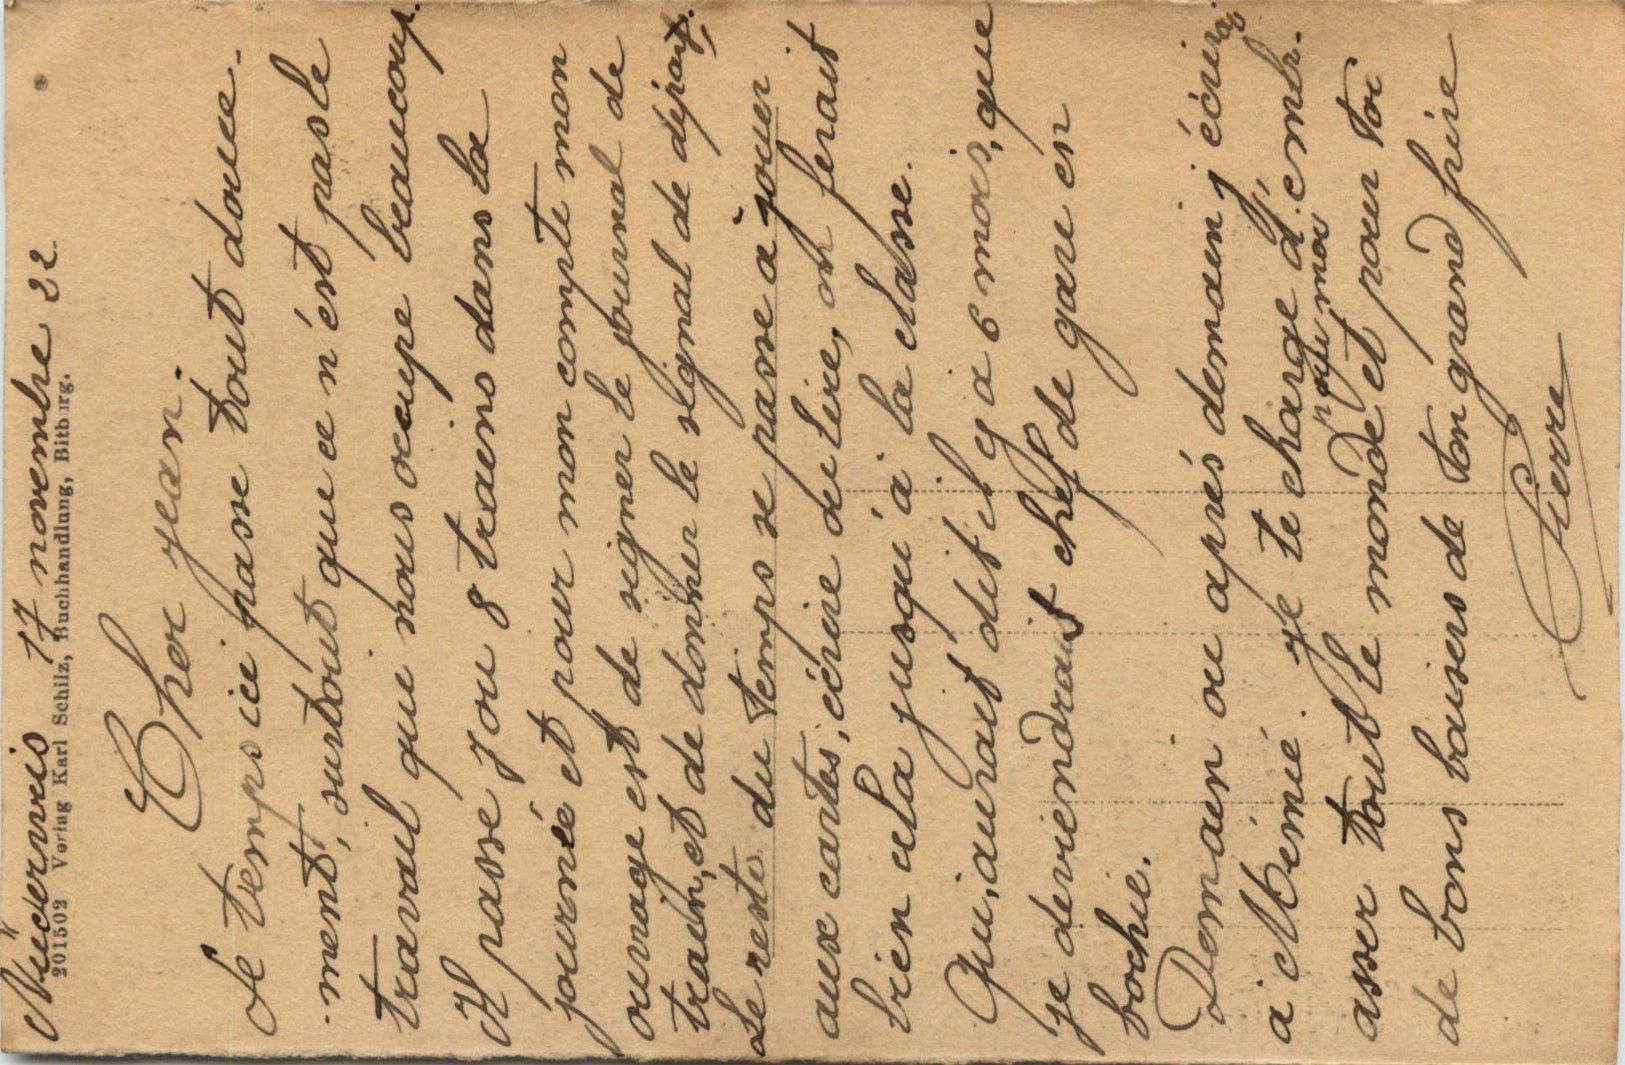 Niederweis 17 novembre 22
201502 Verlag Karl Schilz, Buchhandlung, Bitburg.
Cher Jean.
Le temps ici passe tout douce-
ment, surtout que ce n'est pas le
travail que nous occupe beaucoup.
Il passe 7 ou 8 trains dans la
journée et pour mon compte mon
ouvrage est de signer le journal de
train, et de donner le signal de départ;
Le reste du temps se passe à jouer
aux cartes, écrire du lire, on ferait
bien cela jusqu'à la classe.
Qui, aurait dit il y a 6 mois, que
je deviendrait chef de gare en
bochie.
Demain ou après demain j'écrirai
à Mémé. Je te charge d'emb-
asser tout le monde pour moi et pour toi
de bons baisers de ton grand frère
Pierre